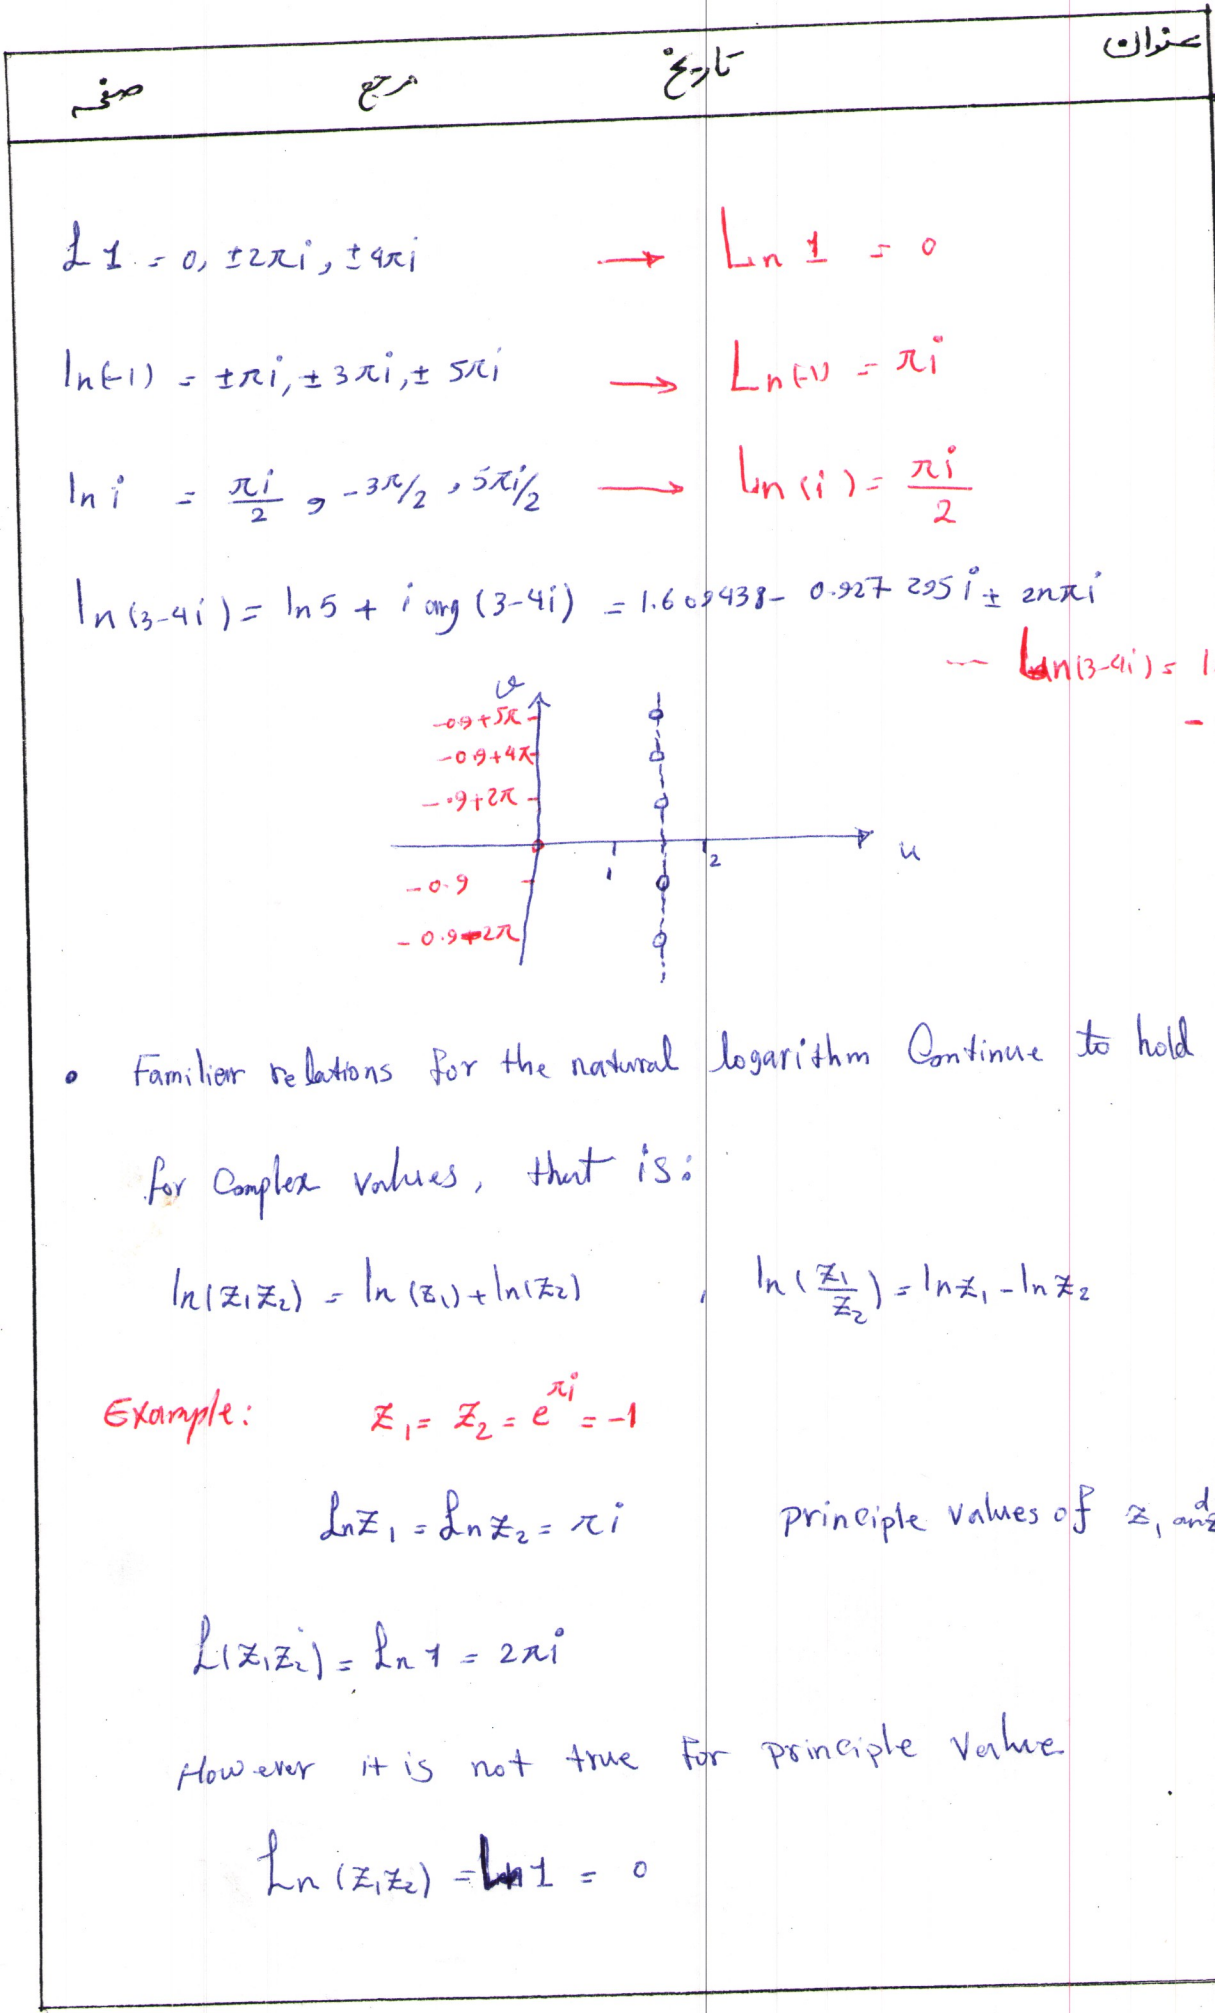 عنوان تاریخ مرجع صفحه
L 1 = 0, ±2πi, ±4πi → Ln 1 = 0
ln(-1) = ±πi, ±3πi, ± 5πi → Ln(-1) = πi
ln i = πi/2 , -3π/2 , 5πi/2 → Ln (i) = πi/2
ln(3-4i) = ln5 + i arg (3-4i) = 1.609438 - 0.927295 i ± 2nπi
— Ln(3-4i) = 1.
-
v
-0.9+5π
-0.9+4π
-.9+2π
1 2 u
-0.9
-0.9-2π
• Familier relations for the natural logarithm Continue to hold
for Complex values, that is:
ln(z₁z₂) = ln (z₁) + ln(z₂) , ln(z₁/z₂) = ln z₁ - ln z₂
Example: z₁ = z₂ = e^πi = -1
Ln z₁ = Ln z₂ = πi principle values of z₁ and
L(z₁z₂) = Ln 1 = 2πi
However it is not true for principle value
Ln (z₁z₂) = Ln 1 = 0